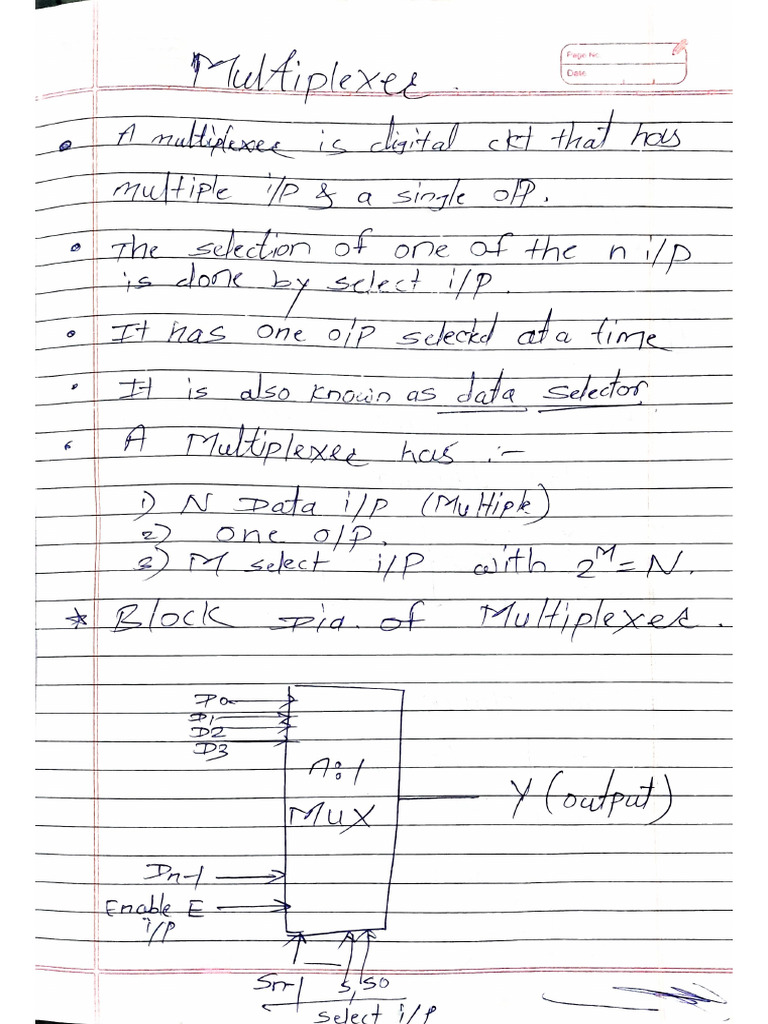 Page No.
Date
Multiplexer.
• A multiplexer is digital ckt that has
multiple i/p & a single o/p.
• The selection of one of the n i/p
is done by select i/p.
• It has one o/p selected at a time
• It is also known as data selector.
• A Multiplexer has :-
1) N Data i/p (Multiple)
2) One o/p.
3) M select i/p with 2^M = N.
* Block Dia. of Multiplexer.
D0
D1
D2
D3
n:1
MUX
Y (output)
Dn-1
Enable E
i/p
Sm-1 S1 S0
select i/p